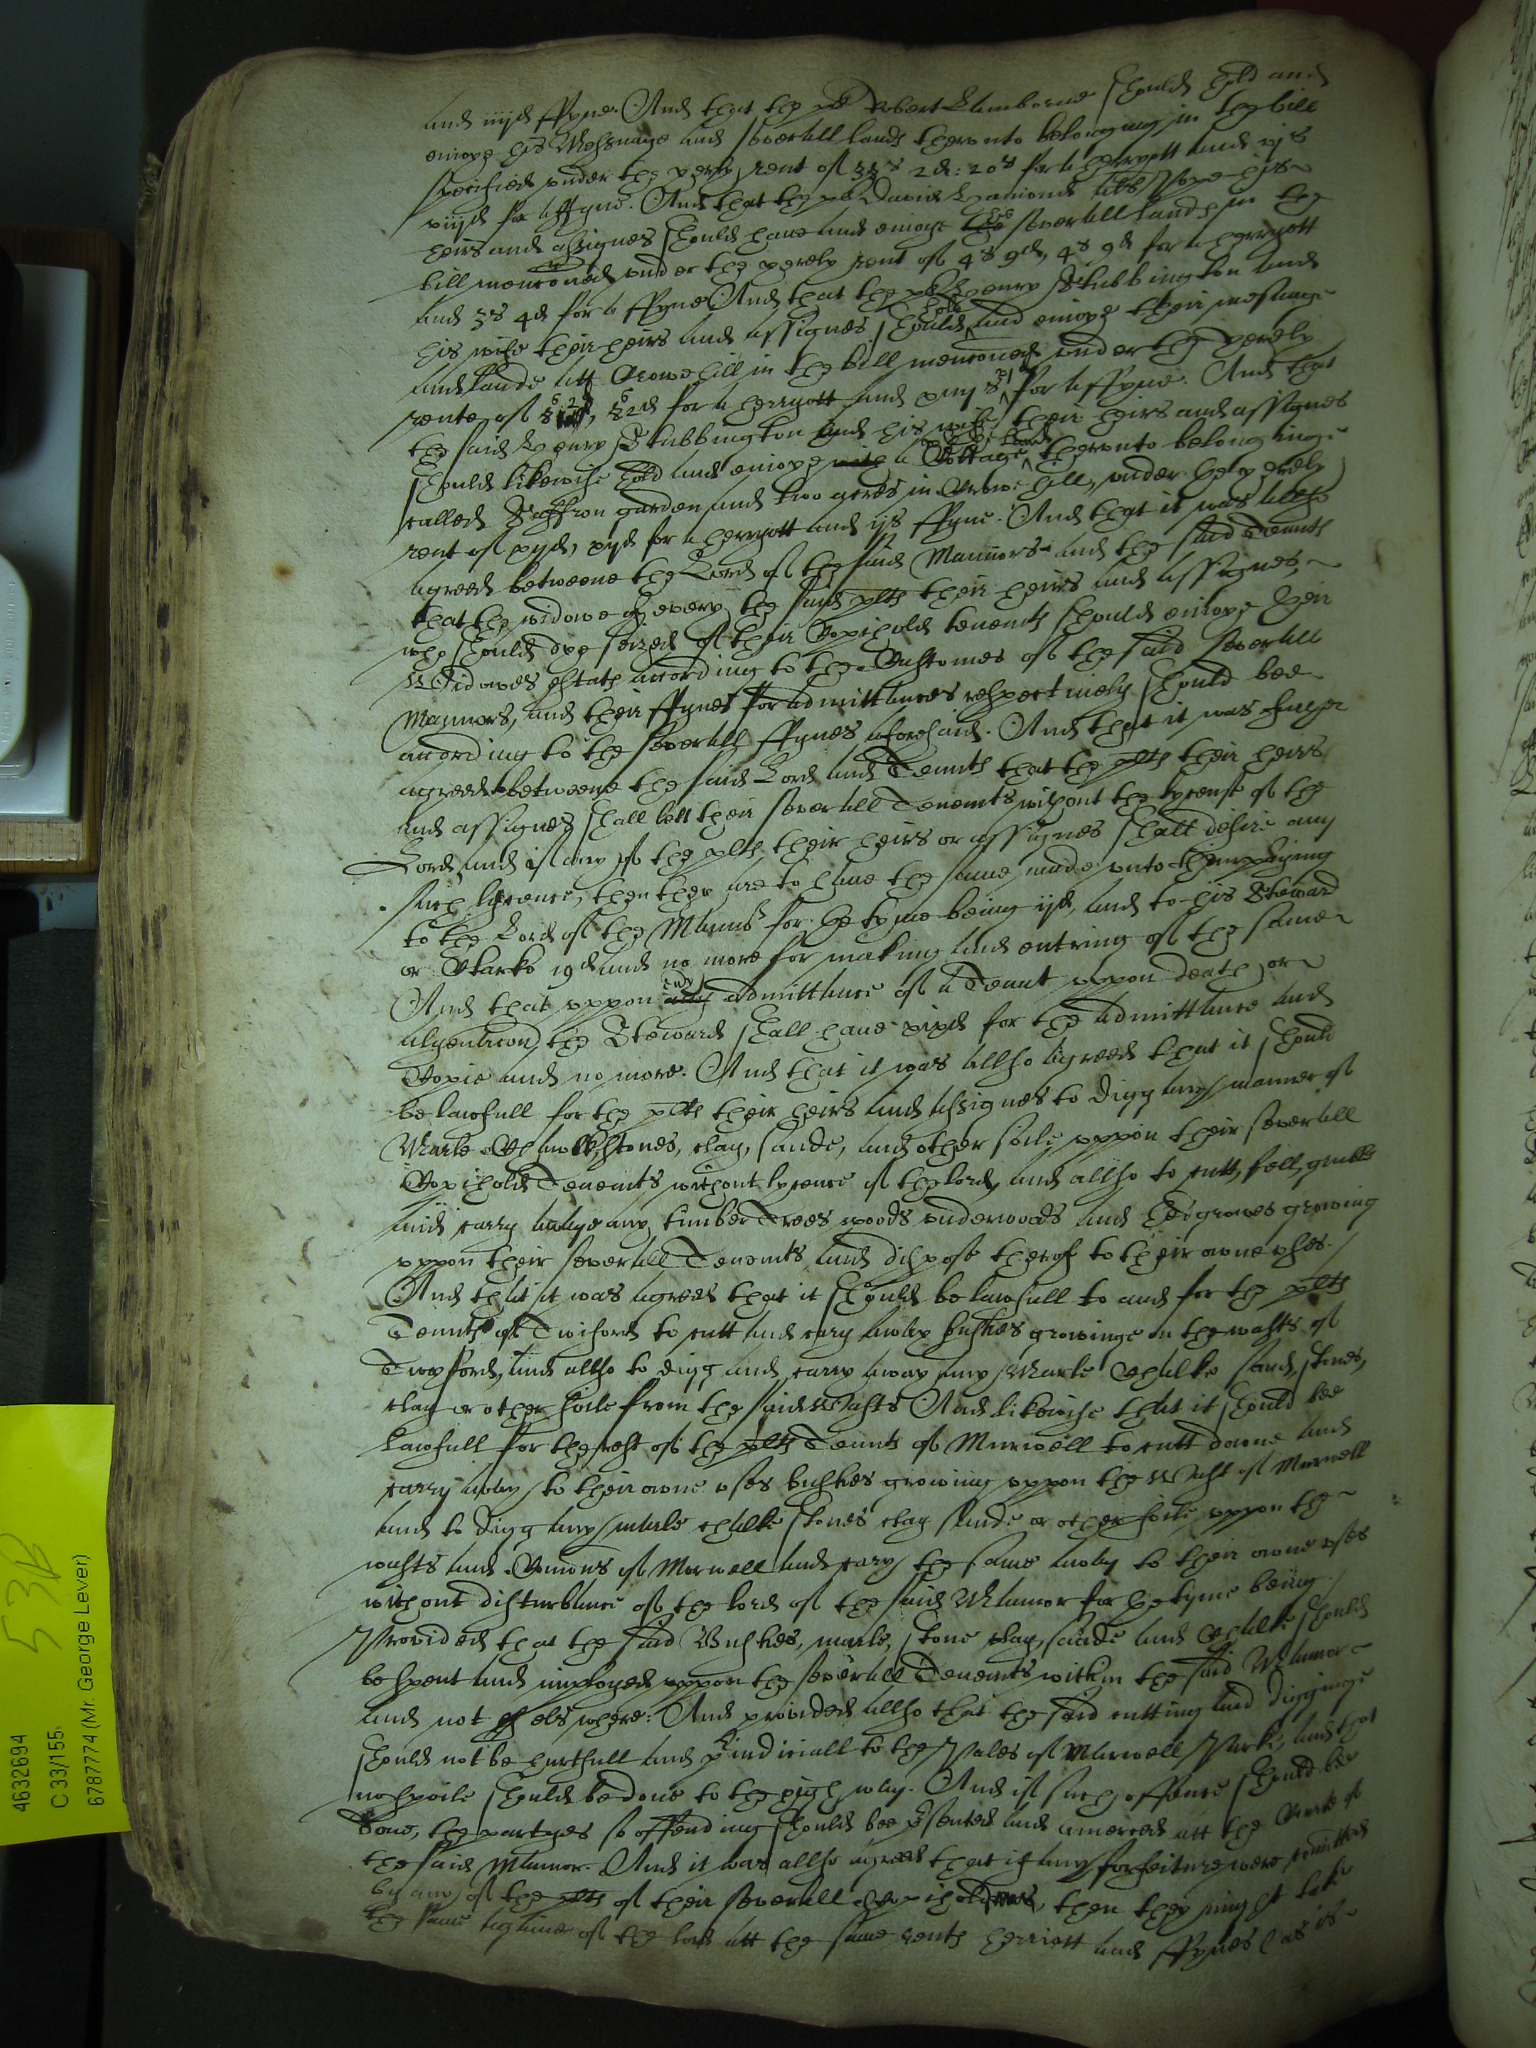 and iiijd ffyne. And that the pl Robert Lamborne should hold and
enioye his Messuage and severall lands therunto belonging in the bill
specified under the yerly rent of 33s 2d: 20s for a herryott and vjs
viijd for a ffyne. And that the pl David Hamond als Pope his
heirs and assignes should have and enioye the severall lands in the
bill menconed under the yerely rent of 4s 9d, 4s 9d for a herryott
and 3s 4d for a ffyne And that the pl Henry Stubbington and
his wife their heirs and assignes should hold and enioye their mesuage
and lande att Crowe hill in the bill menconed under the yerely
rente of for a herryott and for a ffyne. And that
the said Henry Stubbington and his wife their heirs and assignes
should likewise hold and enioye a Cottage and Land therunto belonginge
called Saffron garden and two acres in Crowe hill, under the yerely
rent of xijd, xijd for a herryott and ijs ffyne. And that it was allso
agreed betweene the Lord of the said Mannors and the said Tenants
that the widowe of every the said plts their heirs and assignes,
who should dye seized of their Copihold tenemts should enioye their
Widowes estats according to the Customes of the said severall
Mannors, and their ffynes for admittances respectively should bee
according to the severall ffynes aforesaid. And that it was further
agreed betweene the said Lord and Tennts that the plts their heirs
and assignes shall lett their severall Tenemts without the lycense of the
Lord, and if any of the plts, their heirs or assignes shall desire any
such lycence, then they are to have the same made unto them paying
to the Lord of the Mannor for the tyme being ijd, and to his Steward
or Clarke and no more for making and entring of the same
And that uppon any admittance of a Tennt uppon death or
alyenacon, the Steward shall have for the admittance and
Copie and no more. And that it was allso agreed that it should
be lawfull for the plts their heirs and assignes to digg any manner of
Marle Chalke, stones, clay, sande, and other soile uppon their severall
Copihold Tenemts without lycence of the lord, and allso to cutt, fell, grubb
and carry awaye any timber Trees woods underwoods and hedgrowes growing
uppon their severall Tenemts and dispose therof to their owne uses.
And that it was agreed that it should be lawfull to and for the plts
Tennts of Twiford to cutt and cary away bushes growinge on the wasts of
Twyford, and allso to digg and carry away any Marle Chalke sand, stones,
clay or other soile from the said Wasts And likewise that it should bee
lawfull for the rest of the plts Tennts of Marwell to cutt downe and
carry away to their owne uses bushes growing uppon the Wast of Marwell
and to digg any marle chalke stones clay sande or other soile uppon the
wasts and Comons of Marwell and cary the same away to their owne uses
without disturbance of the lord of the said Mannor for the tyme being.
Provided that the said Bushes, marle, stone clay, sande and Chalke should
be spent and imployed uppon the severall Tenemts within the said Mannor
and not els where: And provided allso that the said cutting and digginge
should not be hurtfull and piudiciall to the Pales of Marwell Parke, and that
no spoile should be done to the high way. And if such offence should be
done, the partyes so offending should bee psented and amerced att the Courte of
the said Mannor. And it was allso agreed that if any forfeiture were comitted
by any of the plts of their severall Copiholds, then they might take
the same againe of the lord att the same rents herriott and ffynes (as is
4632694
C 33/155
6787774 (Mr. George Lever)
53B